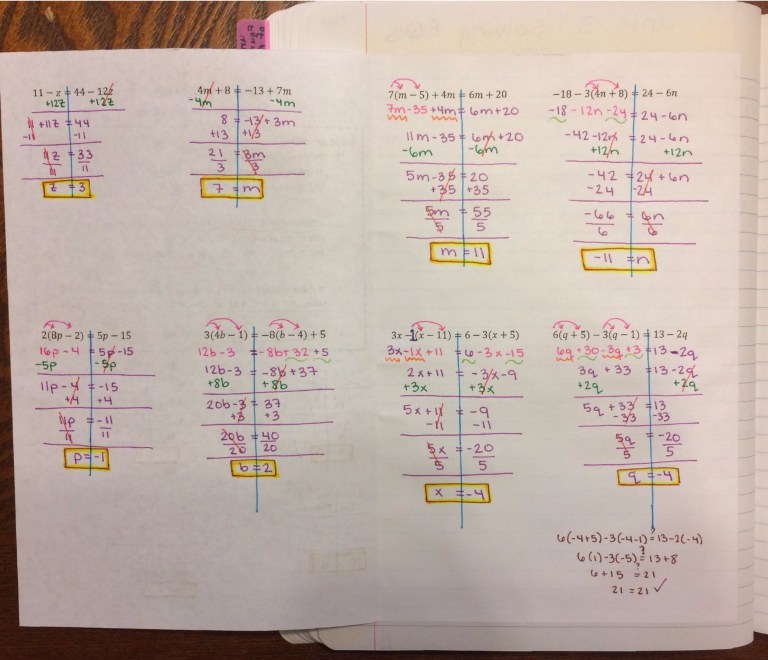 11 − z = 44 − 12z
+12z +12z
11 +11z = 44
-11 -11
11z = 33
11 11
z = 3
4m + 8 = −13 + 7m
-4m -4m
8 = -13 + 3m
+13 +13
21 = 3m
3 3
7 = m
7(m − 5) + 4m = 6m + 20
7m - 35 + 4m = 6m + 20
11m - 35 = 6m + 20
-6m -6m
5m - 35 = 20
+35 +35
5m = 55
5 5
m = 11
−18 − 3(4n + 8) = 24 − 6n
-18 - 12n - 24 = 24 - 6n
-42 - 12n = 24 - 6n
+12n +12n
-42 = 24 + 6n
-24 -24
-66 = 6n
6 6
-11 = n
2(8p − 2) = 5p − 15
16p - 4 = 5p - 15
-5p -5p
11p - 4 = -15
+4 +4
11p = -11
11 11
p = -1
3(4b − 1) = −8(b − 4) + 5
12b - 3 = -8b + 32 + 5
12b - 3 = -8b + 37
+8b +8b
20b - 3 = 37
+3 +3
20b = 40
20 20
b = 2
3x − 1(x − 11) = 6 − 3(x + 5)
3x - 1x + 11 = 6 - 3x - 15
2x + 11 = -3x - 9
+3x +3x
5x + 11 = -9
-11 -11
5x = -20
5 5
x = -4
6(q + 5) − 3(q − 1) = 13 − 2q
6q + 30 - 3q + 3 = 13 - 2q
3q + 33 = 13 - 2q
+2q +2q
5q + 33 = 13
-33 -33
5q = -20
5 5
q = -4
6(-4+5) - 3(-4-1) ?= 13 - 2(-4)
6(1) - 3(-5) ?= 13 + 8
6 + 15 ?= 21
21 = 21 ✓